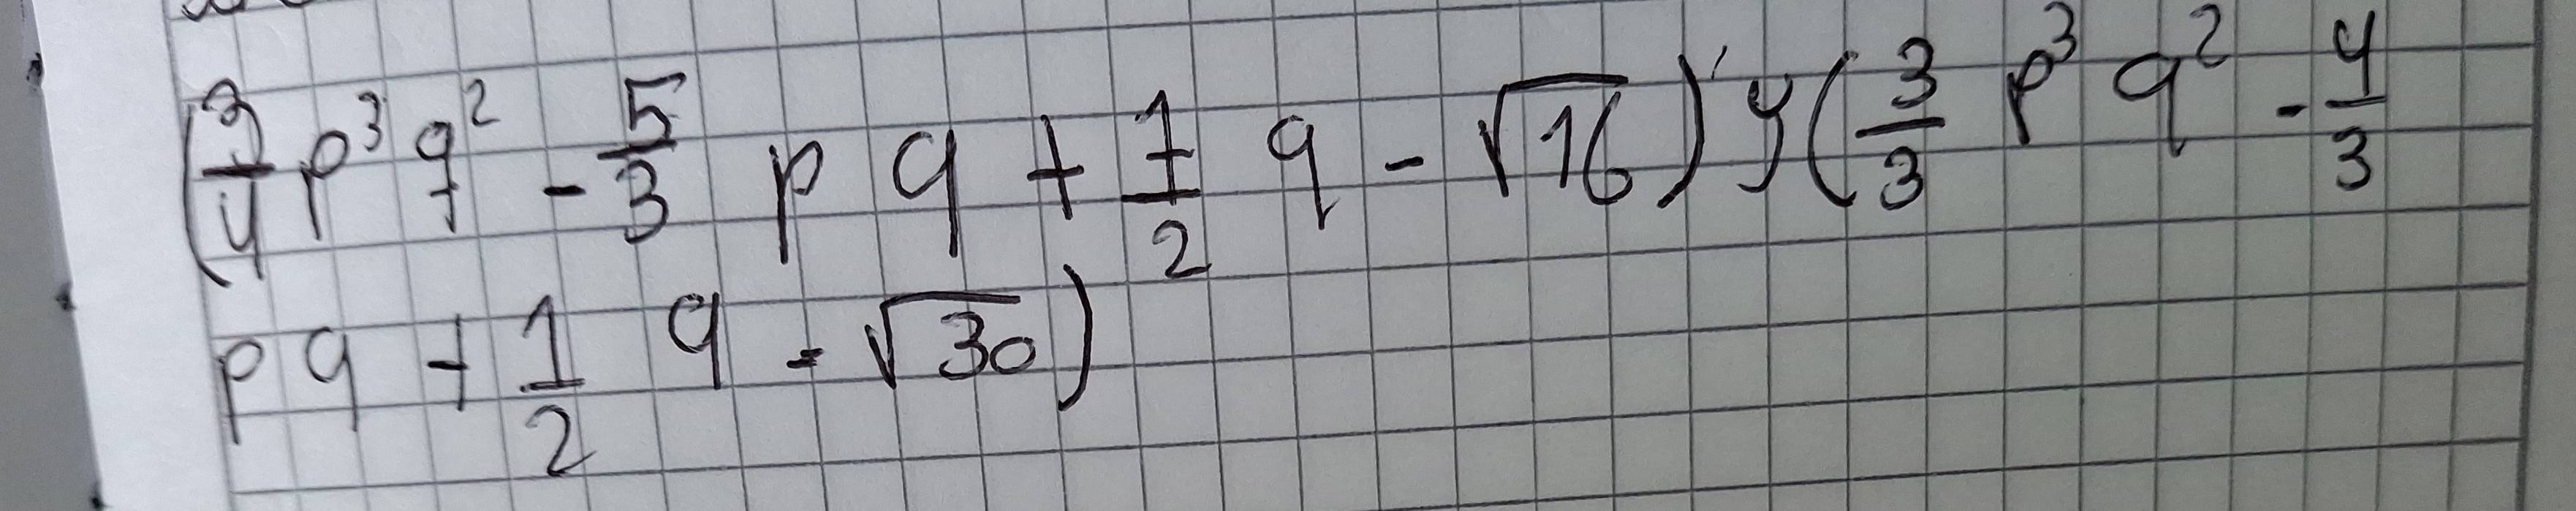 (3/4 p³ q² - 5/3 p q + 1/2 q - √16) y (3/3 p³ q² - 4/3
p q + 1/2 q - √30)